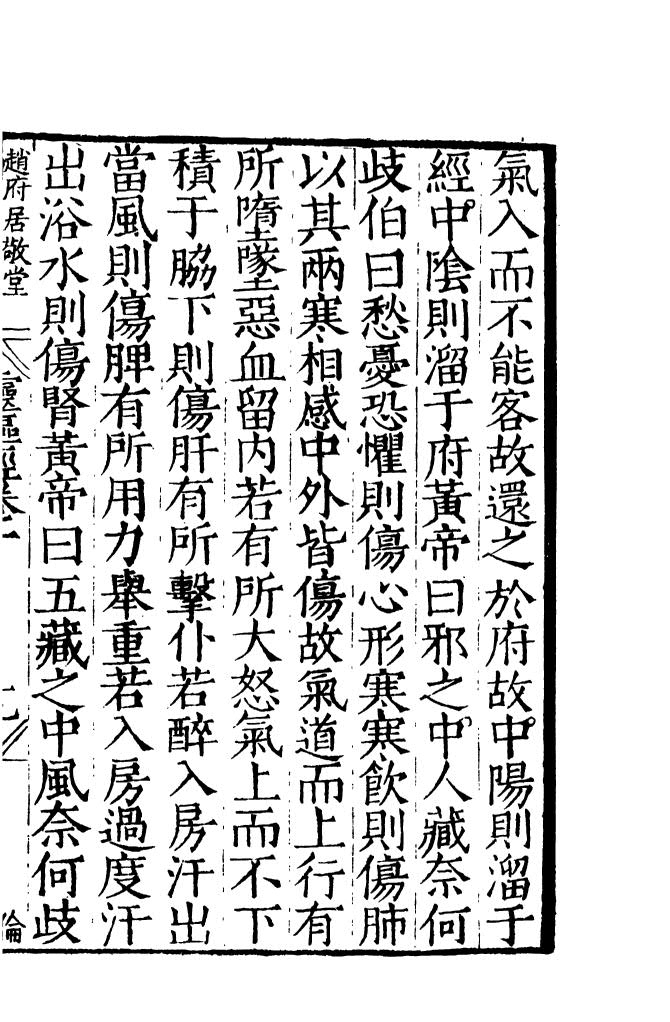 氣入而不能客故還之於府故中陽則溜于
經中陰則溜于府黃帝曰邪之中人藏奈何
歧伯曰愁憂恐懼則傷心形寒寒飲則傷肺
以其兩寒相感中外皆傷故氣道而上行有
所墮墜惡血留內若有所大怒氣上而不下
積于脇下則傷肝有所擊仆若醉入房汗出
當風則傷脾有所用力舉重若入房過度汗
出浴水則傷腎黃帝曰五藏之中風奈何歧
趙府居敬堂